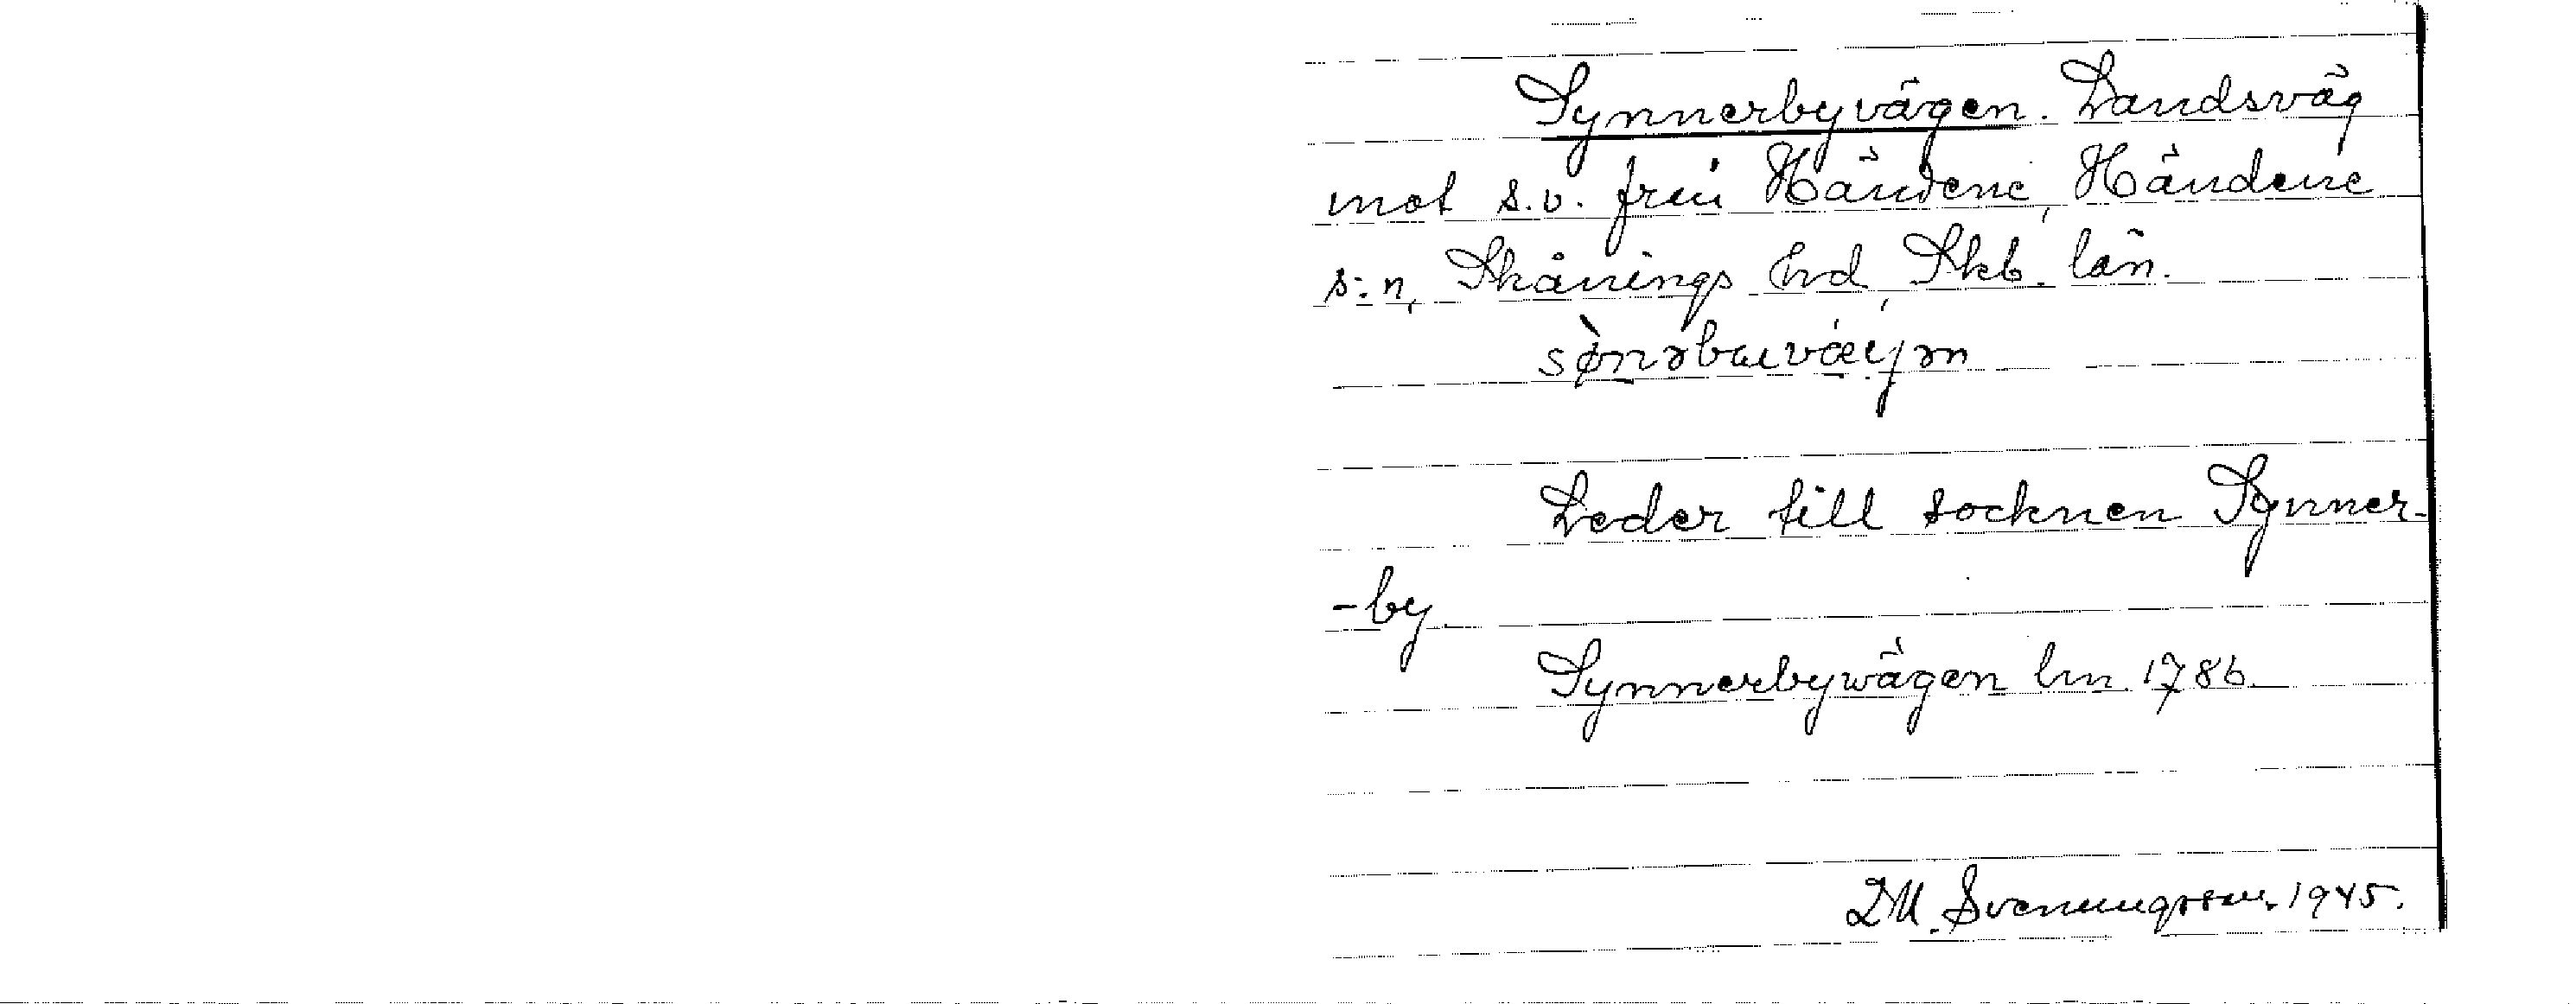 Synnerbyvägen. Landsväg
mot s.v. från Händene, Händene
s:n, Skånings hd, Skb. län.
Leder till socknen Synner-
-by.
Synnerbywägen lm 1786.
D.M. Svenungsson. 1945.